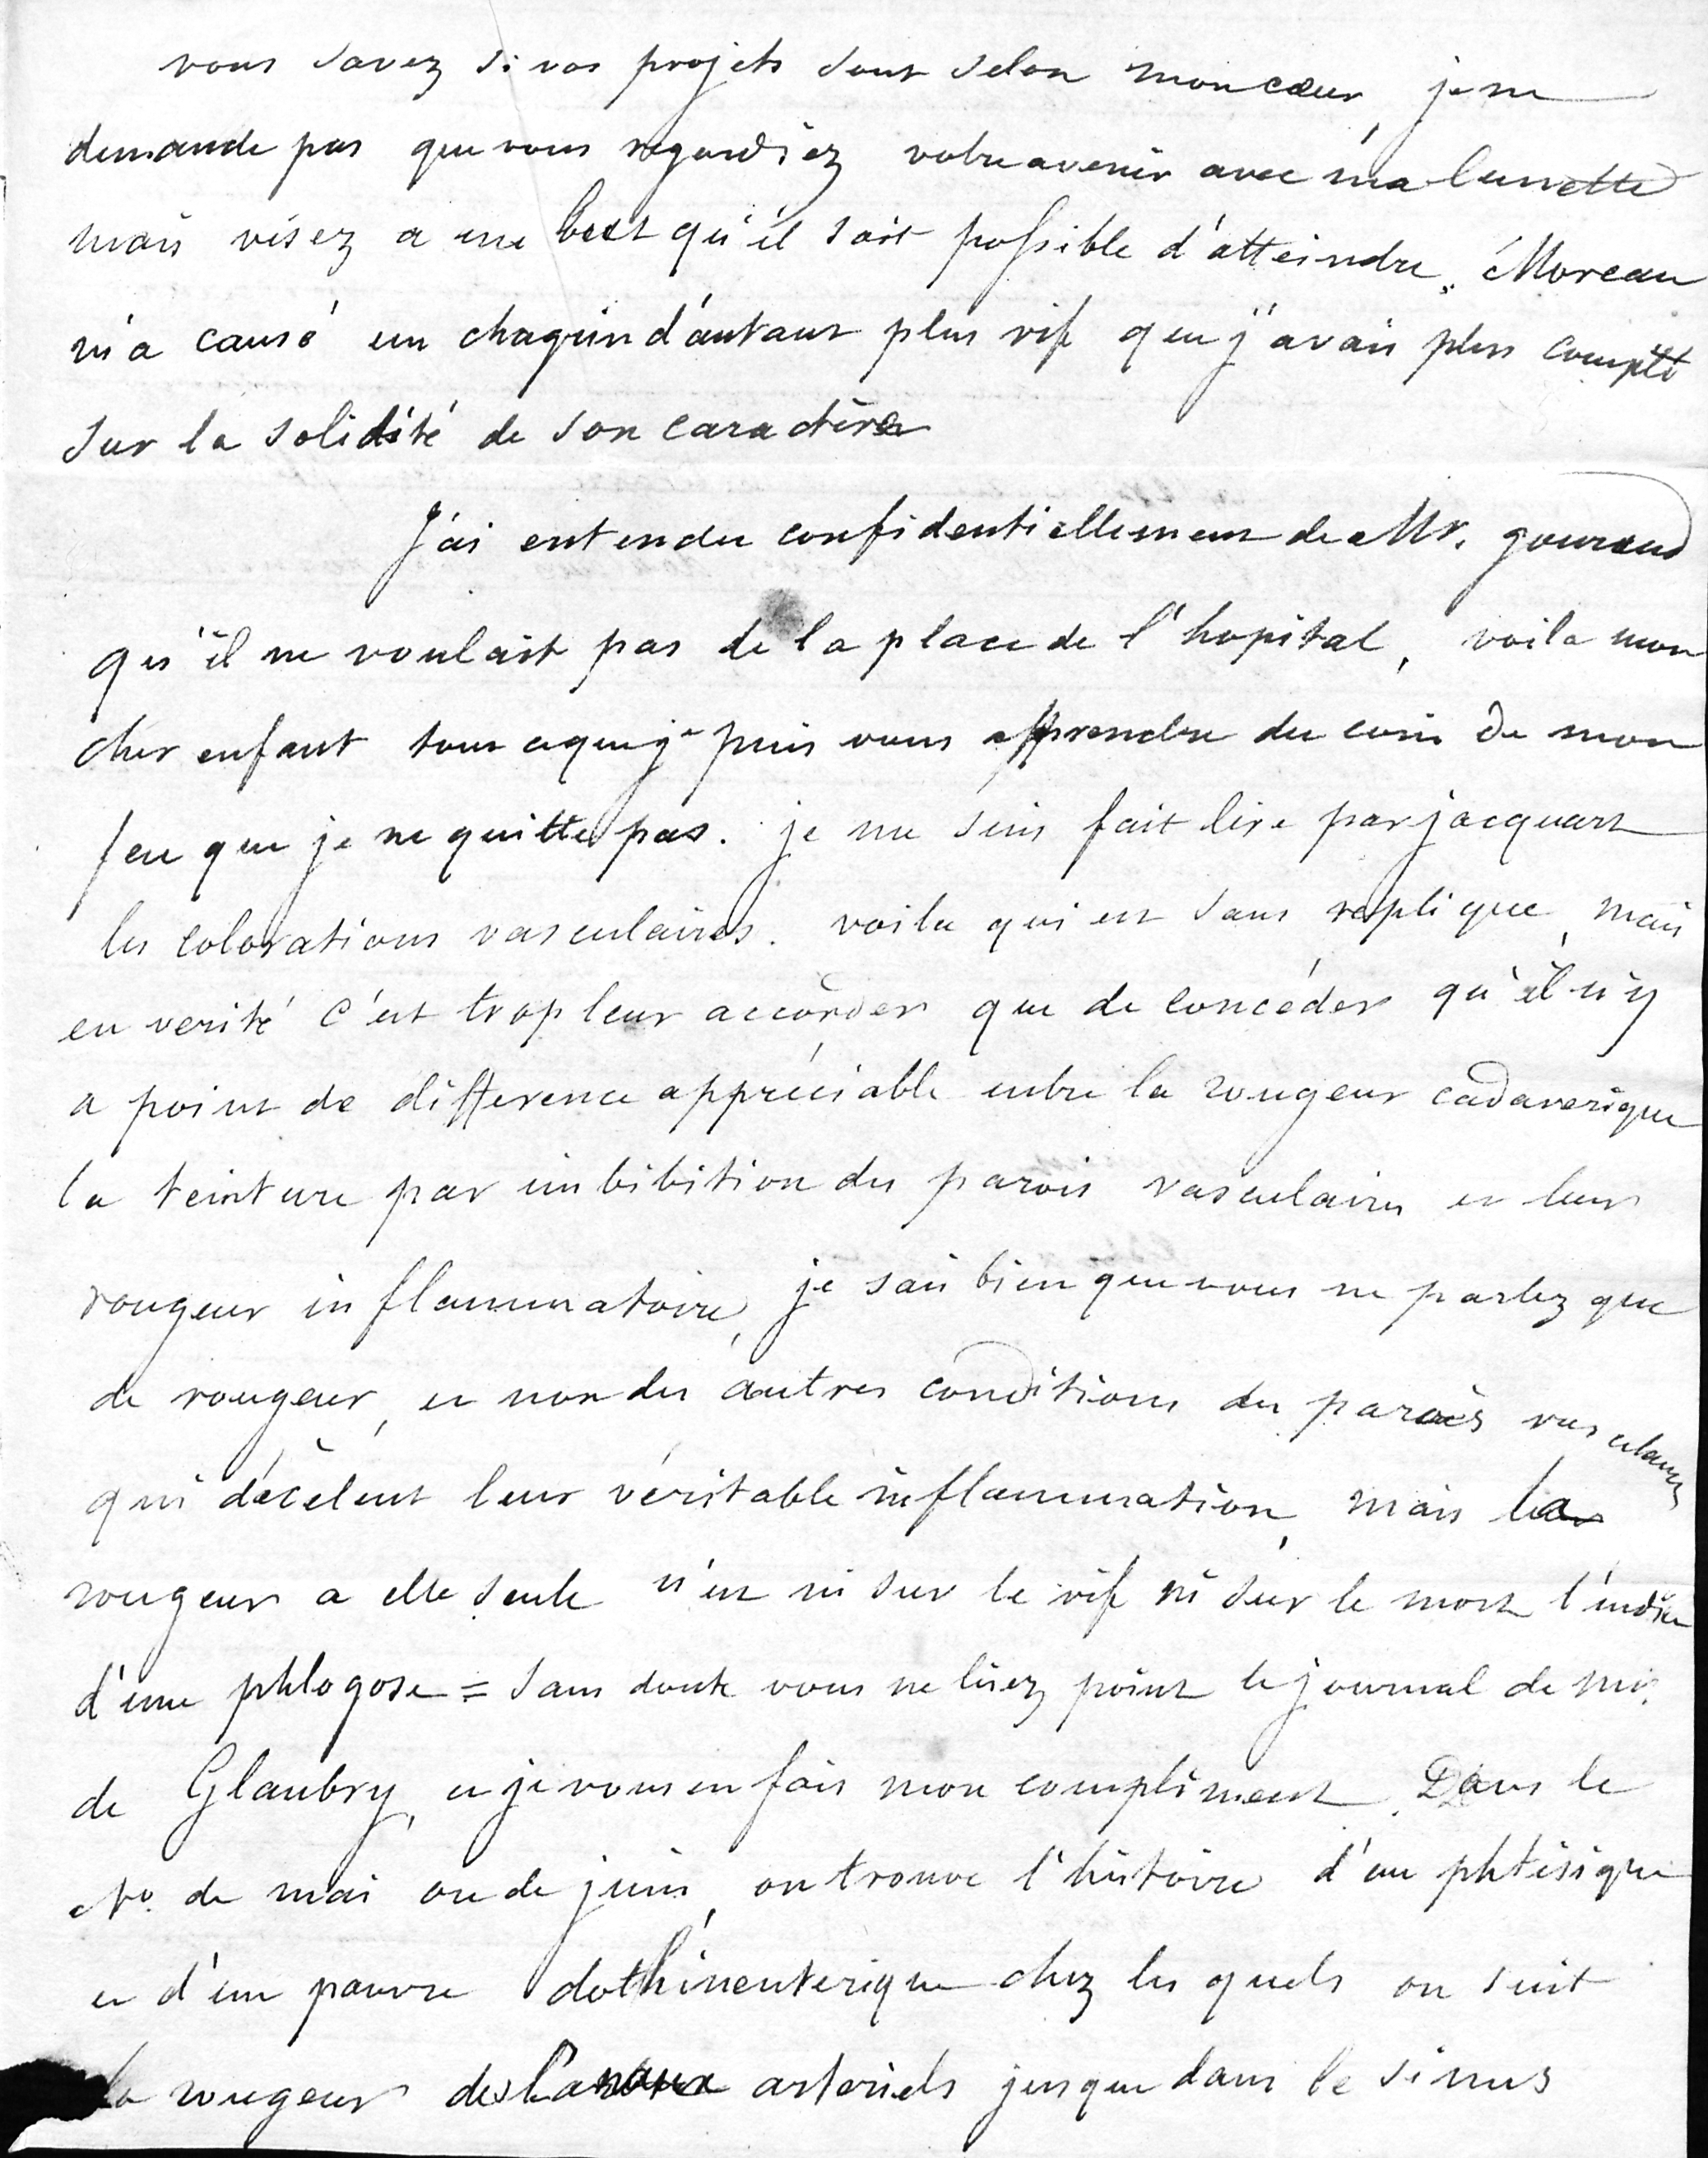 vous savez si vos projets sont selon mon cœur, je ne
demande pas que vous regardiez votre avenir avec ma lunette
mais visez a une but qu'il soit possible d'atteindre. Moreau
m'a causé un chagrin d'autant plus vif que j'avais plus compté
sur la solidité de son caractère
J'ai entendu confidentiellement de Mr. gouraud
qu'il ne voulait pas de la place de l'hopital, voila mon
cher enfant tout ce que je puis vous apprendre du coin de mon
feu que je ne quitte pas. je me suis fait lire par jacquart
les colorations vasculaires. voila qui est sans replique, mais
en verité c'est trop leur accorder que de concéder qu'il n'y
a point de difference appréciable entre la rougeur cadaverique
la teinture par imbibition des parois vasculaires et leur
rougeur inflammatoire, je sais bien que vous ne parlez que
de rougeur, et non des autres conditions des parois vasculaires
qui décèlent leur véritable inflammation, mais la
rougeur a elle seule n'est ni sur le vif ni sur le mort l'indice
d'une phlogose = sans doute vous ne lisez point le journal de mr.
de Glaubry, et je vous en fais mon compliment. Dans le
No. de mai ou de juin, on trouve l'histoire d'un phtisique
et d'un pauvre dothinenterique chez les quels on suit
la rougeur des canaux arteriels jusque dans le sinus